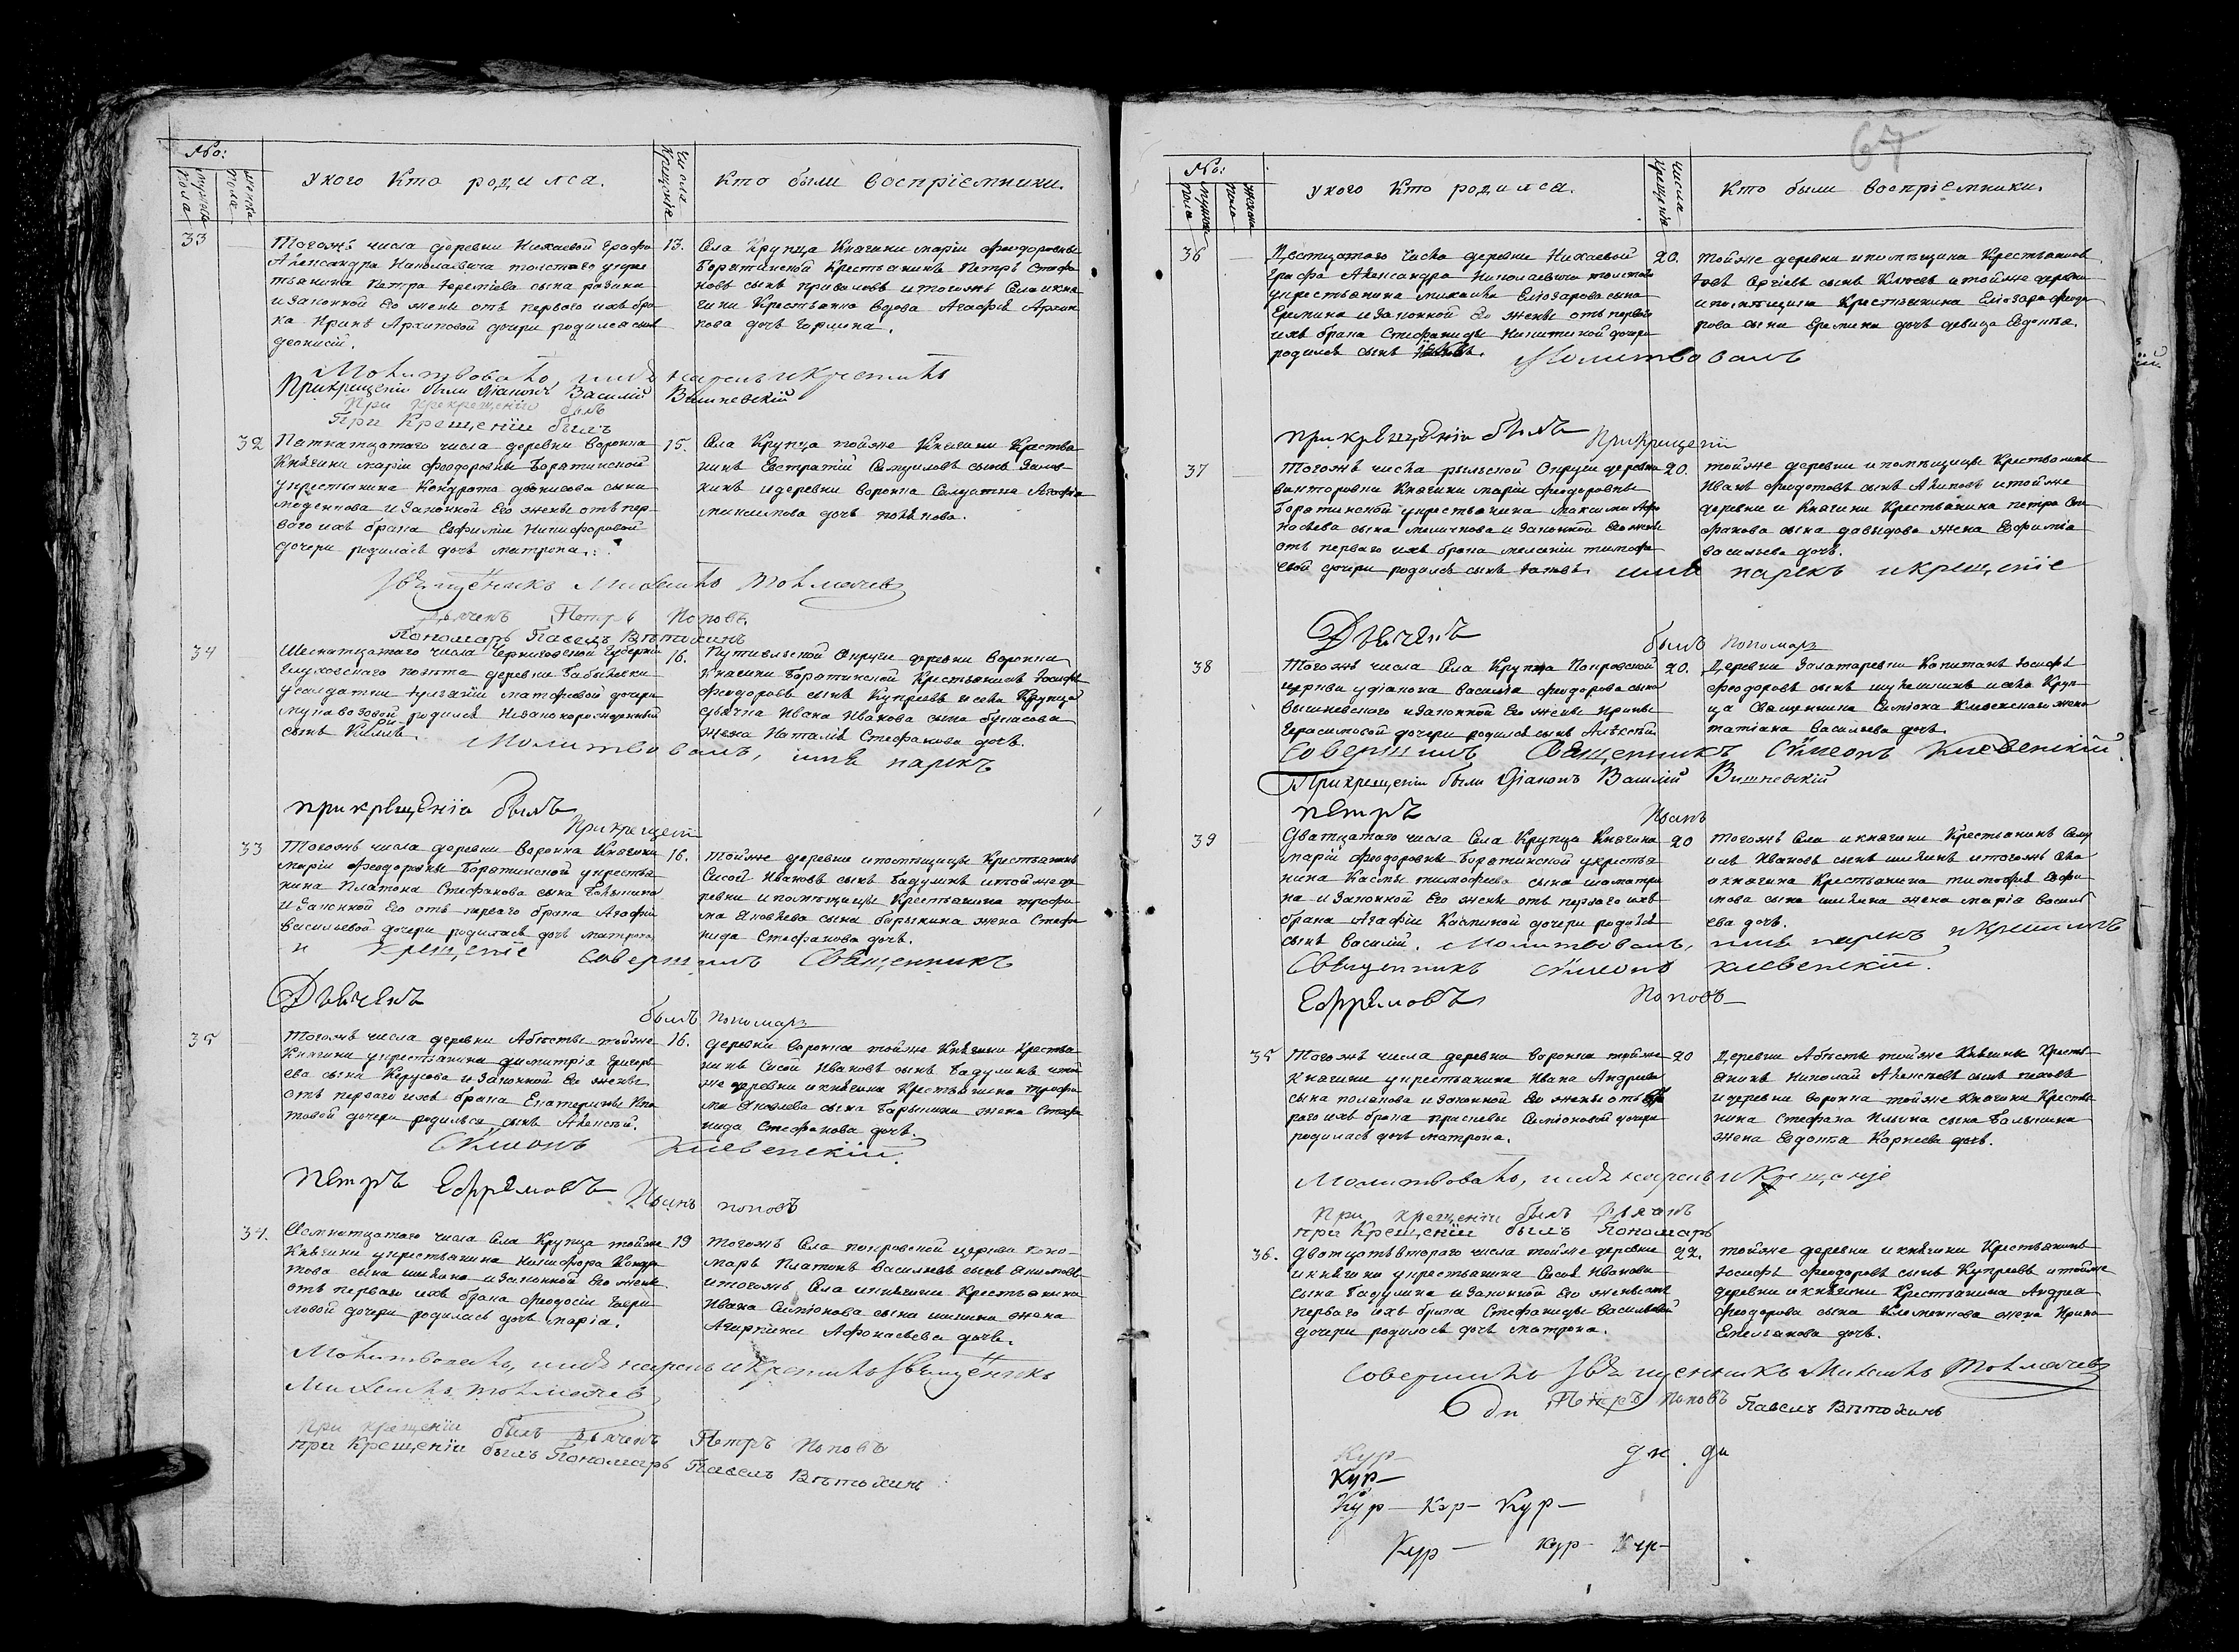 №:
мужеска пола
женска пола
У кого кто родился.
Числа крещенія
Кто были воспріемники.
33
Тогожъ числа деревни Нижаевой Графа
Александра Николаевича толстого укре
тьянина Петра
и законной Его жены отъ первого ихъ бра
ка Ирины Архиповой дочери родился сынъ
деонисій.
13.
Села Крупца Княгини маріи феодоровны
Борятинской Крестьянинъ Петръ Стефа
новъ сынъ и тогожъ Села и кня
гини Крестьянка вдова Агафья Архип
пова дочь
Молитвовалъ имя нарекъ и Крестилъ
При крещеніи были Діаконъ Василій Вишневскій
При крещеніи былъ
При Крещеніи былъ
32
Патнатцатаго числа деревни Воронка
Княгини маріи феодоровны Борятинской
укрестьянина Кондрата деонисова сына
и законной Его жены отъ пер
ваго ихъ брака Евфиміи Никифоровой
дочери родилась дочь матрона.
15.
Села Крупца тойже Княгини Крестья
нинъ Евстратій Самуиловъ сынъ
кинъ и деревни Воронка Салдатка Агафья
дочь
Священникъ Михаилъ Толмачев
Дьячекъ Петръ Поповъ
Пономарь Павелъ Вѣтохинъ
34
Шеснатцатаго числа Черниговской Губерніи
Глуховского повѣта деревни
усалдатки матфеевой дочери
родился Незаконорожденный
сынъ Кирилъ.
16.
Путивльской Округи деревни Воронки
Княгини Борятинской Крестьянинъ Іосифъ
феодоровъ сынъ Купреевъ и села Крупца
дьячка Ивана Иванова сына
жена Наталія Стефанова дочь.
Молитвовалъ, имя нарекъ
при крещеніи былъ
При крещеніи
33
Тогожъ числа деревни Воронка Княгини
маріи феодоровны Борятинской укрестья
нина Платона Стефанова сына
и законной Его отъ перваго брака Агафіи
Васильевой дочери родилась дочь матрона
16.
тойже деревни и помѣщицы Крестьянинъ
Сисой Ивановъ сынъ Бадулинъ и тойже де
ревни и помѣщицы Крестьянина трофи
ма Яковлева сына Барыкина жена Стефа
нида Стефанова дочь.
и крещеніе совершилъ Священникъ
Дьячекъ
былъ пономарь
35
Тогожъ числа деревни Абѣсты тойже
Княгини укрестьянина димитрія Григорь
ева сына и законной Его жены
отъ перваго ихъ брака Екатерины
товой дочери родилься сынъ Алексѣй.
16.
деревни Воронка тойже Княгини Крестья
нинъ Сисой Ивановъ сынъ Бадулинъ и той
же деревни и княгини Крестьянина трофи
ма Яковлева сына Барыкина жена Стефа
нида Стефанова дочь.
Сѵмеонъ Киевенскій.
петръ Ефремовъ Иванъ поповъ
34.
Осмнатцатаго числа Села Крупца тойже
Княгини укрестьянина Никифора Кондра
това сына и законной Его жены
отъ перваго ихъ брака феодосіи Гаври
ловой дочери родилась дочь марія.
19
тогожъ Села покровской церкви Поно
марь Платонъ Васильевъ сынъ
и тогожъ Села и княгини Крестьянина
Ивана Симіонова сына жена
Агрипина Афонасьева дочь.
Молитвовалъ, имя нарекъ и Крестилъ Священникъ
Михаилъ Толмачев
при крещеніи былъ дьячекъ Петръ Поповъ
при Крещеніи былъ Пономарь Павелъ Вѣтохинъ
67
№:
мужска пола
женска пола
У кого кто родился.
Числа крещенія
Кто были воспріемники.
36
деревни Нижаевой
Графа Александра Николаевича толстого
укрестьянина михаила Еліозарова сына
Еремина и законной Его жены отъ перваго
ихъ брака Стефаниды Никитиной дочери
родился сынъ
20.
тойже деревни и помѣщика Крестьянинъ
сынъ и тойже деревни
и помѣщика Крестьянина Еліозара феодо
рова сына Еремина дочь девица Евдокія.
Молитвовалъ
при крещеніи былъ При крещеніи
37
Тогожъ числа рыльской Округи деревни
Викторовки Княгини маріи феодоровны
Борятинской укрестьянина максима Афо
насьева сына и законной Его жены
отъ перваго ихъ брака меланіи тимофе
евой дочери родился сынъ
20.
тойже деревни и помѣщицы Крестьянинъ
Иванъ федотовъ сынъ и тойже
деревни и Княгини Крестьянина петра
сына давыдова жена Евфимія
васильева дочь.
имя нарекъ и крещеніе
Дьячекъ былъ пономарь
38
Тогожъ числа Села Крупца Покровской
церкви у діакона Василія феодорова сына
Вышневского и законной Его жены Ирины
Герасимовой дочери родился сынъ Алексѣй
20.
деревни Залатаревки Капитанъ Іосифъ
феодоровъ сынъ и села Круп
ца Священника Симіона Киевенскаго жена
татіана Васильева дочь.
Совершилъ Священникъ Сѵмеонъ Киевенскій.
При крещеніи были Діаконъ Василій Вишневскій
петръ Иванъ
39
Дватцатаго числа Села Крупца Княгини
маріи феодоровны Борятинской укрестья
нина Касмы тимофеева сына
на и законной Его жены отъ перваго ихъ
брака Агафіи Касминой дочери родился
сынъ Василій.
20
тогожъ Села и княгини Крестьянинъ Саму
илъ Ивановъ сынъ и тогожъ села
и княгини Крестьянина тимофея
мова сына жена марія Василь
ева дочь.
Молитвовалъ, имя нарекъ и Крестилъ
Священникъ Сѵмеонъ Киевенскій.
Ефремовъ Поповъ
35
Тогожъ числа деревни Воронка тойже
Княгини укрестьянина Ивана Андреева
сына полякова и законной Его жены отъ
раго ихъ брака Симіоновой дочери
родилась дочь матрона.
20
деревни Абѣсты тойже Княгини Кресть
янинъ Николай Алексѣевъ сынъ
и деревни Воронка тойже Княгини Крестья
нина Стефана Ильина сына
жена Евдокія Карнеева дочь.
Молитвовалъ, имя нарекъ и Крещеніе
При крещеніи былъ Дьячекъ
при Крещеніи былъ Пономарь
36.
Дватцать втораго числа тойже деревни
и княгини укрестьянина Сисоя Иванова
сына Бадулина и законной Его жены отъ
перваго ихъ брака Стефаниды Васильевой
дочери родилась дочь матрона.
22.
тойже деревни и княгини Крестьянинъ
Іосифъ феодоровъ сынъ Купреевъ и тойже
деревни и княгини Крестьянина Андрея
феодорова сына жена Ирина
Емельянова дочь.
Совершилъ Священникъ Михаилъ Толмачев
Петръ Поповъ Павелъ Вѣтохинъ
Кур
Кур
Кур Кур Кур
Кур Кур Кур